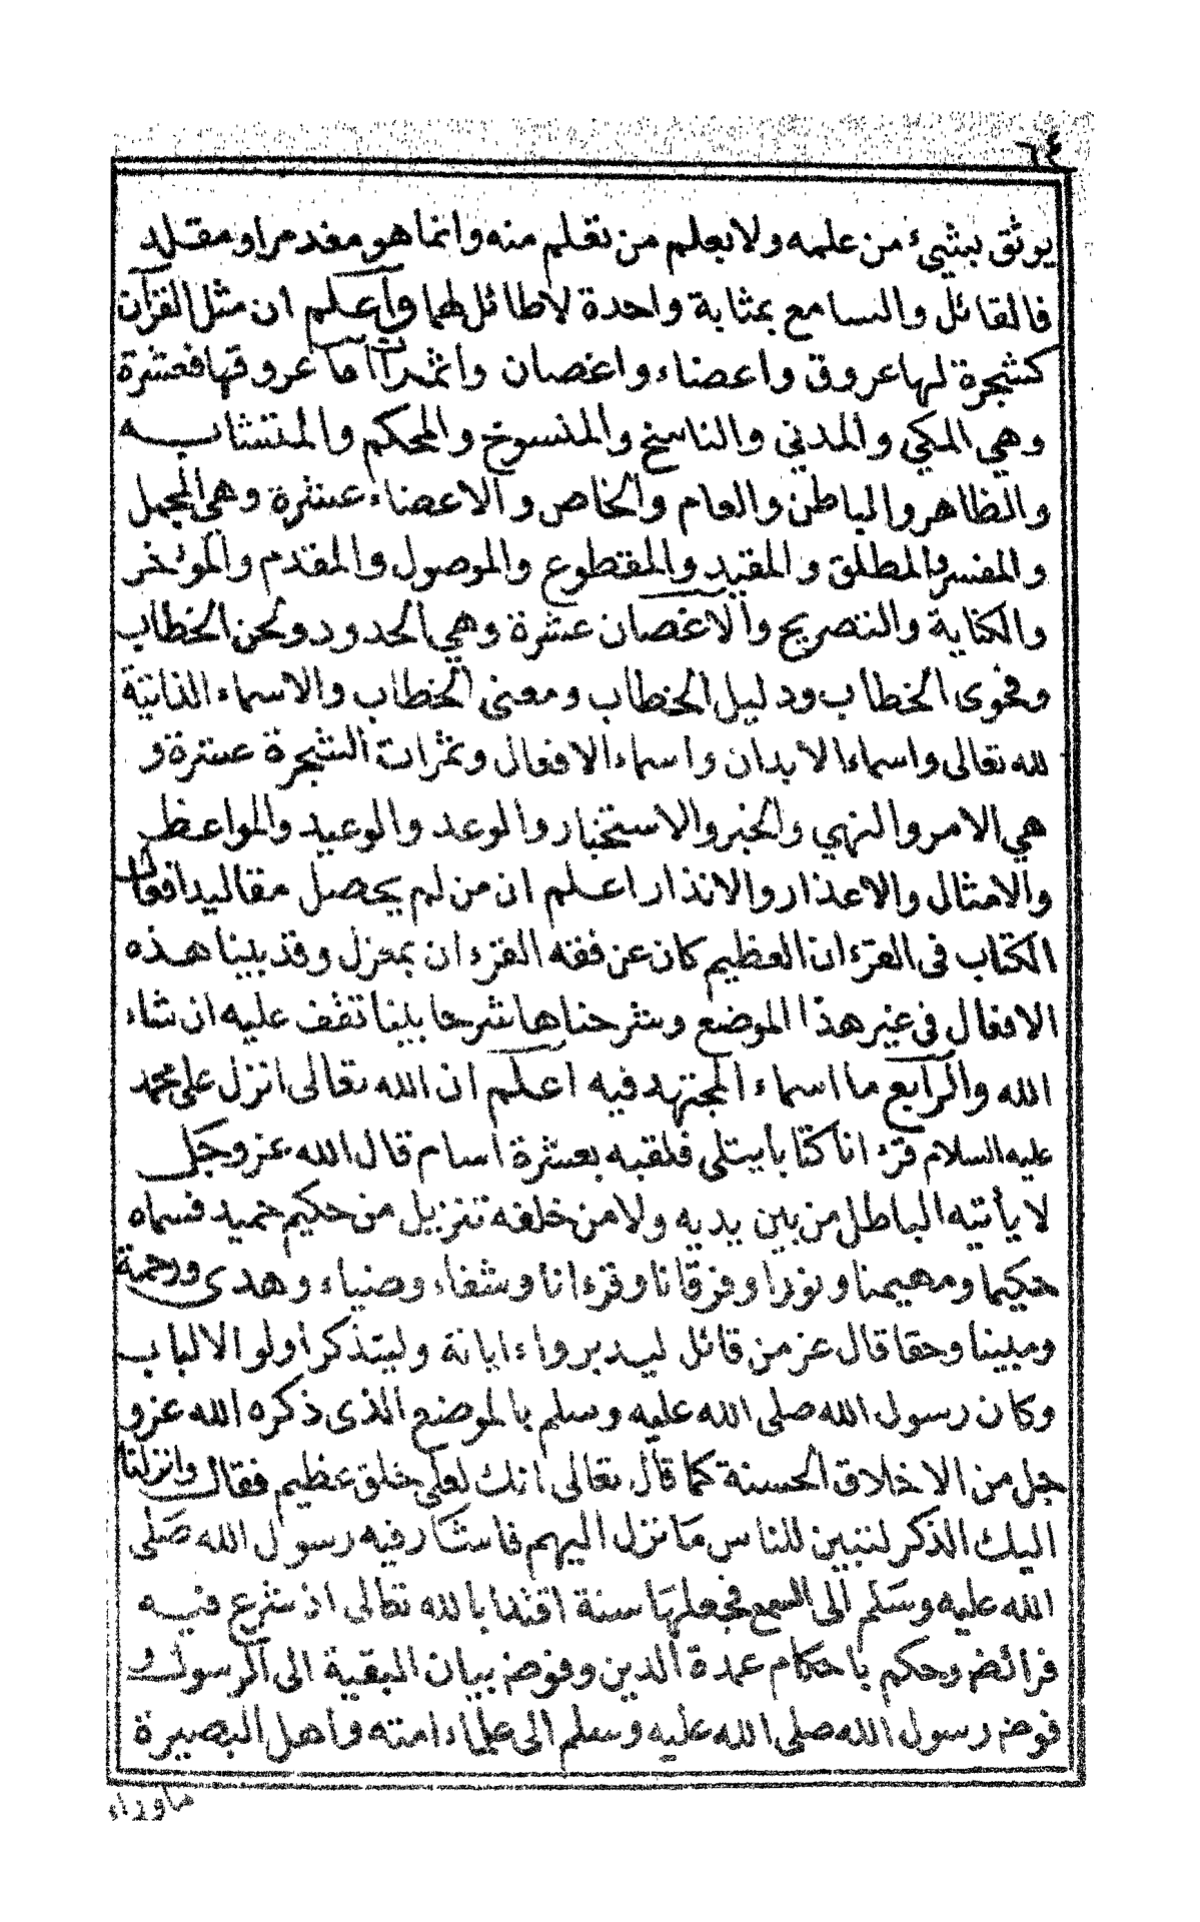 ٦٤
يوثق بشيء من علمه ولا بعلم من تعلم منه وانما هو مغدمر او مقلد
فالقائل والسامع بمثابة واحدة لا طائل لهما واعلم ان مثل القرآن
كشجرة لها عروق واعضاء واغصان واثمرا اما عروقها فعشرة
وهي المكي والمدني والناسخ والمنسوخ والمحكم والمتشابه
والظاهر والباطن والعام والخاص والاعضاء عشرة وهي المجمل
والمفسر والمطلق والمقيد والمقطوع والموصول والمقدم والمؤخر
والكناية والتصريح والاغصان عشرة وهي الحدود ولحن الخطاب
وفحوى الخطاب ودليل الخطاب ومعنى الخطاب والاسماء الذاتية
لله تعالى واسماء الابدان واسماء الافعال وثمرات الشجرة عشرة و
هي الامر والنهي والخبر والاستخبار والوعد والوعيد والمواعظ
والامثال والاعذار والانذار اعلم ان من لم يحصل مقاليد اقفال
الكتاب في القرءان العظيم كان عن فقه القرءان بمعزل وقد بينا هذه
الاقفال في غير هذا الموضع وشرحناها شرحا بينا تقف عليه ان شاء
الله والرابع ما اسماء المجتهد فيه اعلم ان الله تعالى انزل على محمد
عليه السلام قرءانا كتابا يتلى فلقبه بعشرة اسام قال الله عز وجل
لا يأتيه الباطل من بين يديه ولا من خلفه تنزيل من حكيم حميد فسماه
حكيما ومهيمنا ونورا وفرقانا وقرءانا وشفاء وضياء وهدى ورحمة
ومبينا وحقا قال عز من قائل ليدبروا ءاياته وليتذكر اولو الالباب
وكان رسول الله صلى الله عليه وسلم بالموضع الذى ذكره الله عز و
جل من الاخلاق الحسنة كما قال تعالى انك لعلى خلق عظيم فقال وانزلنا
اليك الذكر لتبين للناس ما نزل اليهم فاشار فيه رسول الله صلى
الله عليه وسلم الى السمع فجعلها سنة اقتدا بالله تعالى اذ شرع فيه
فرائض وحكم باحكام عمدة الدين وفوض بيان البقية الى الرسول و
فوض رسول الله صلى الله عليه وسلم الى علماء امته واهل البصيرة
ماوراء